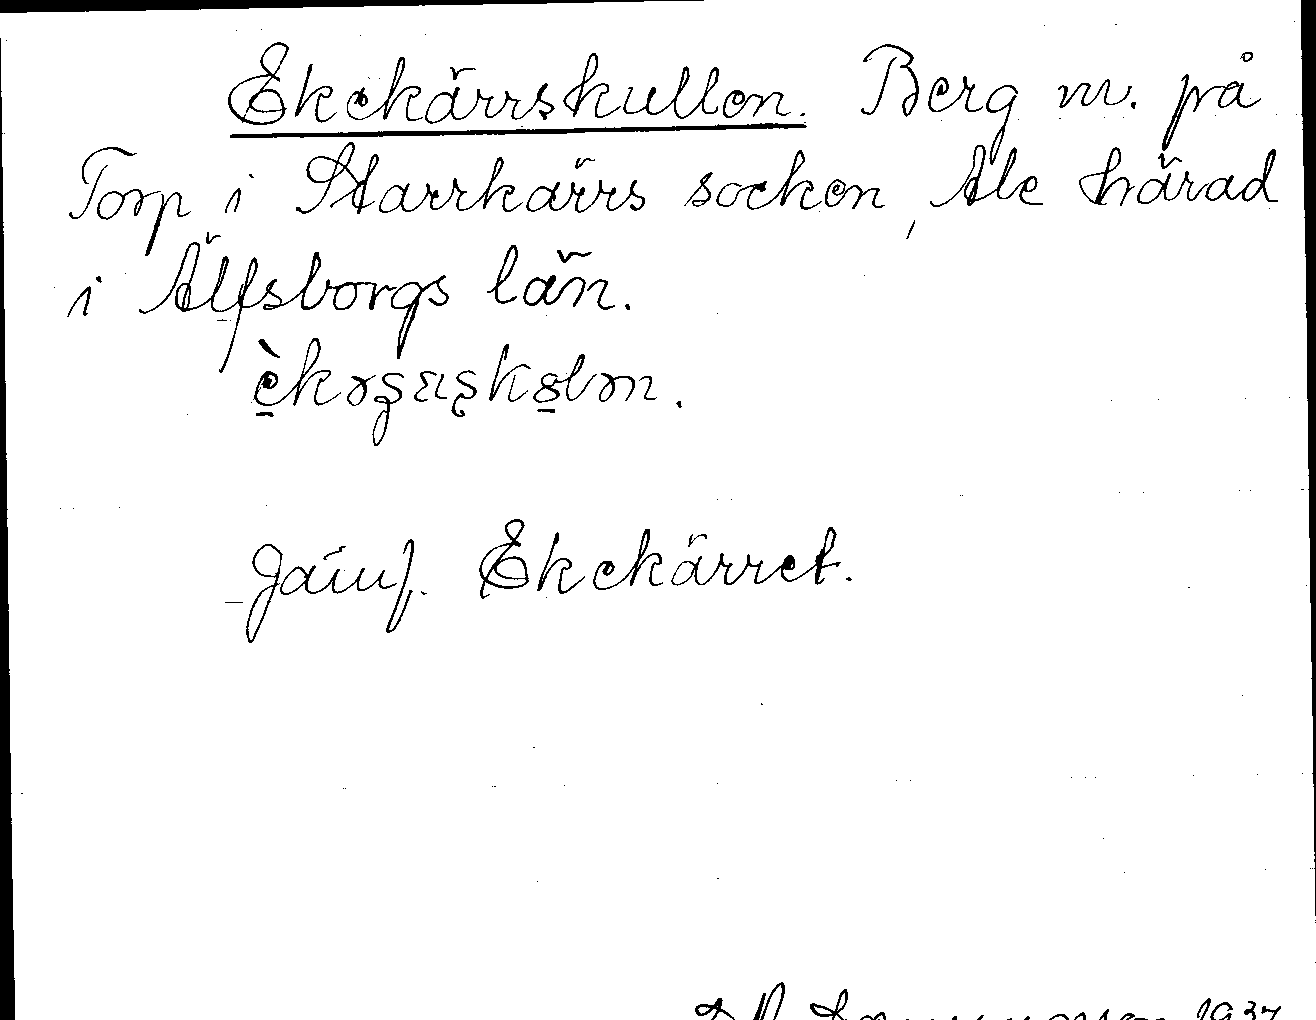 Ekekärrskullen. Berg m. på
Torp i Starrkärrs socken, Ale härad
i Älfsborgs län.
Jämf. Ekekärret.
1937